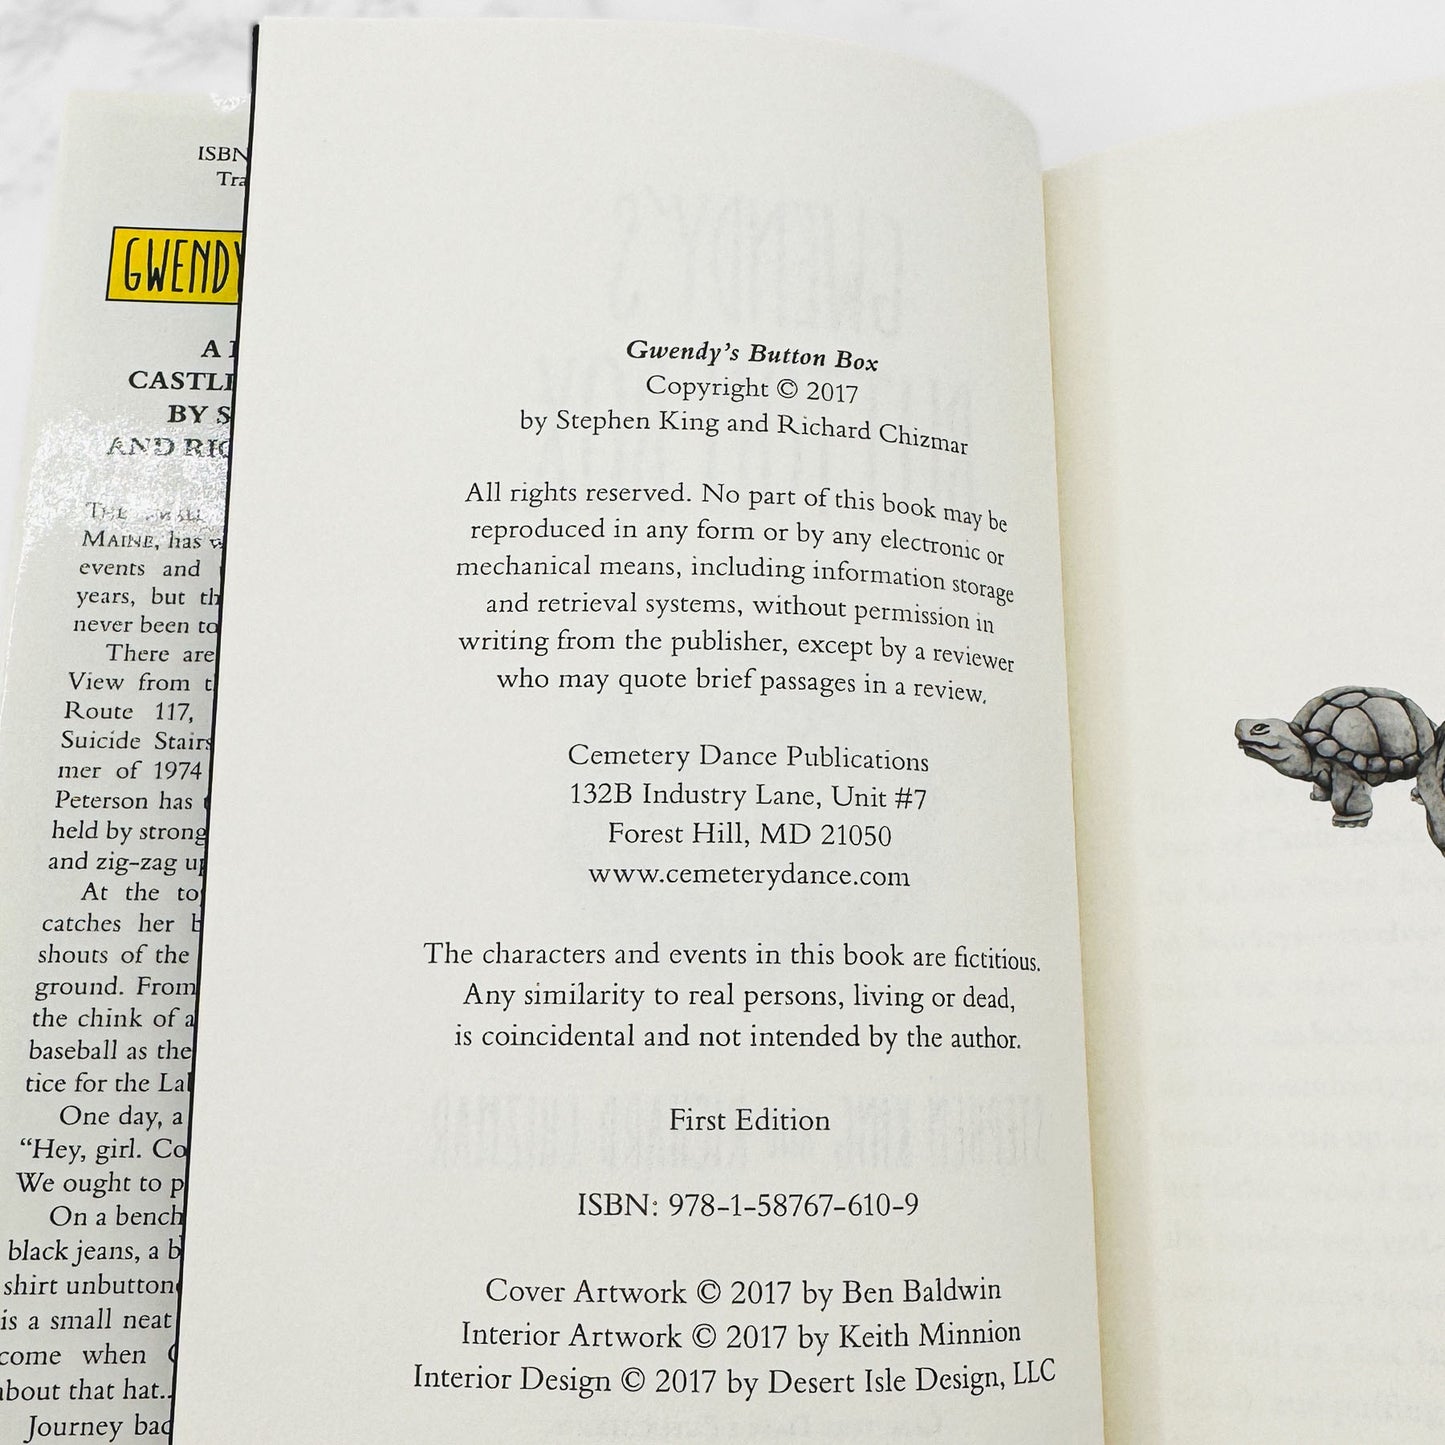 ISBN
GWENDY
CASTLE
BY S
AND RIC
MAINE, has
events and
years, but
never been to
There are
View from
Route 117,
Suicide Stairs
mer of 1974
Peterson has
held by strong
and zig-zag up
At the top
catches her
shouts of the
ground. From
the chink of a
baseball as the
tice for the
One day, a
“Hey, girl. Co
We ought to p
On a bench
black jeans, a b
shirt unbuttone
is a small neat
come when
about that hat..
Journey bac
Gwendy’s Button Box
Copyright © 2017
by Stephen King and Richard Chizmar
All rights reserved. No part of this book may be
reproduced in any form or by any electronic or
mechanical means, including information storage
and retrieval systems, without permission in
writing from the publisher, except by a reviewer
who may quote brief passages in a review.
Cemetery Dance Publications
132B Industry Lane, Unit #7
Forest Hill, MD 21050
www.cemeterydance.com
The characters and events in this book are fictitious.
Any similarity to real persons, living or dead,
is coincidental and not intended by the author.
First Edition
ISBN: 978-1-58767-610-9
Cover Artwork © 2017 by Ben Baldwin
Interior Artwork © 2017 by Keith Minnion
Interior Design © 2017 by Desert Isle Design, LLC